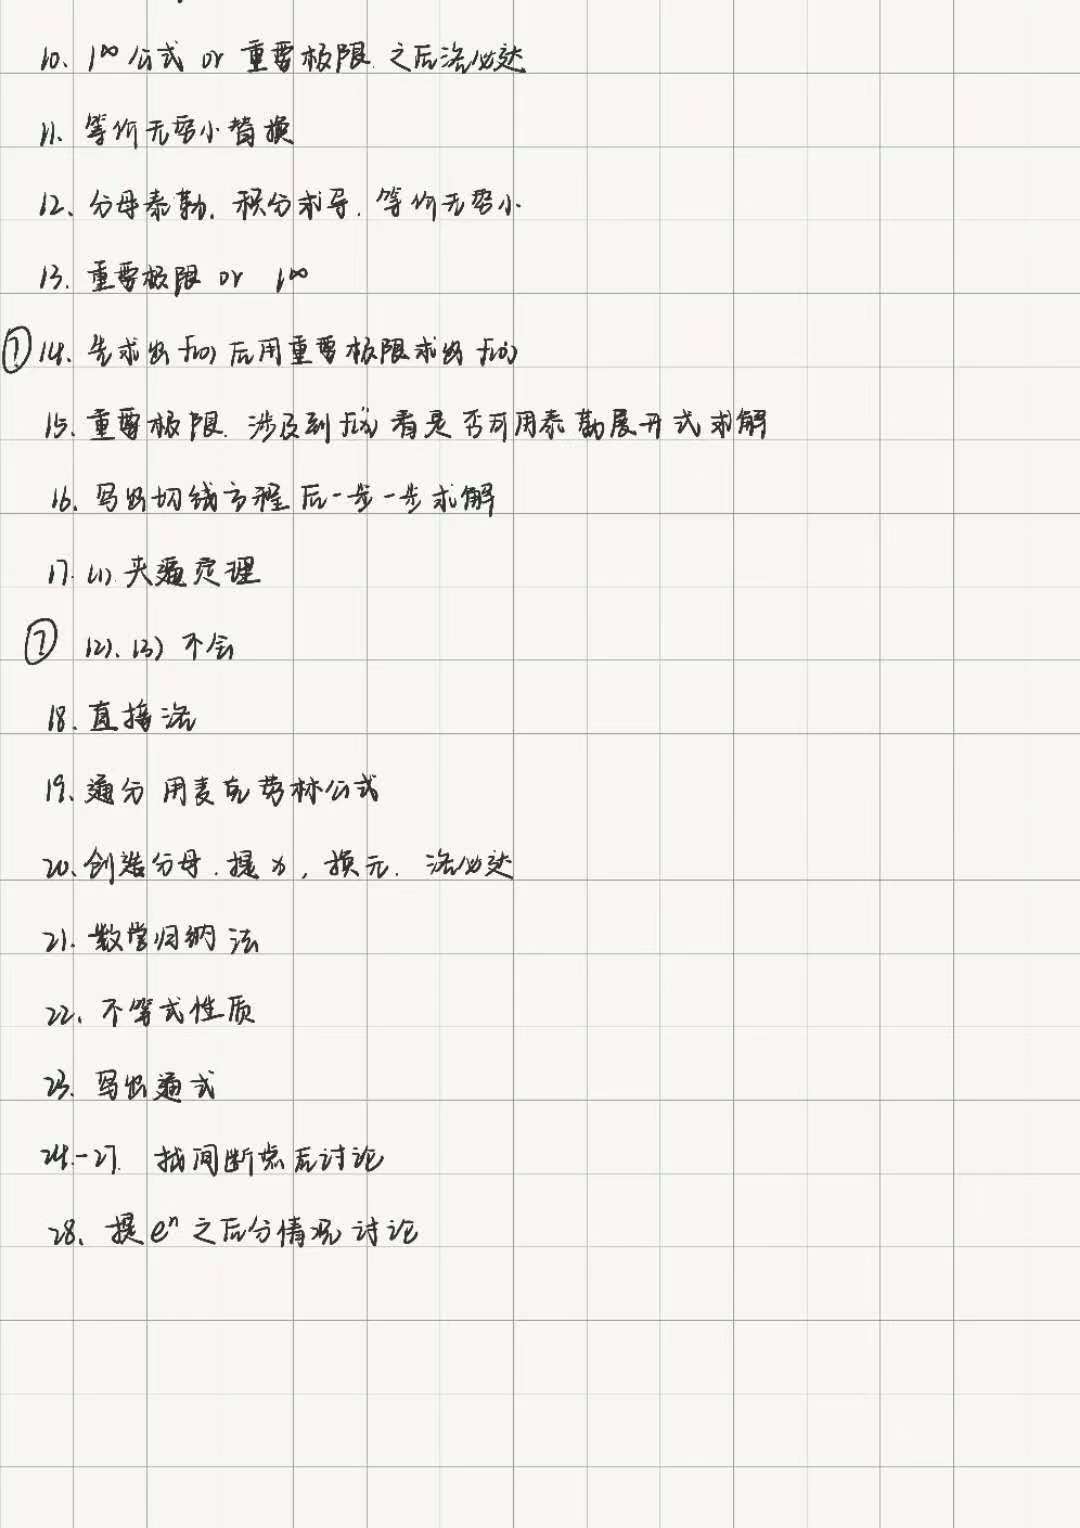 10、1^∞公式 or 重要极限.之后洛必达
11、等价无穷小替换
12、分母泰勒,积分求导,等价无穷小
13、重要极限 or 1^∞
? 14、先求出f(0)后用重要极限求出f'(0)
15、重要极限.涉及到f''(x)看是否可用泰勒展开式求解
16、写出切线方程后一步一步求解
17.(1).夹逼定理
? (2)、(3)不会
18、直接洛
19、通分 用麦克劳林公式
20、创造分母.提x,换元.洛必达
21.数学归纳法
22、不等式性质
23、写出通式
24-27.找间断点后讨论
28、提eⁿ之后分情况讨论